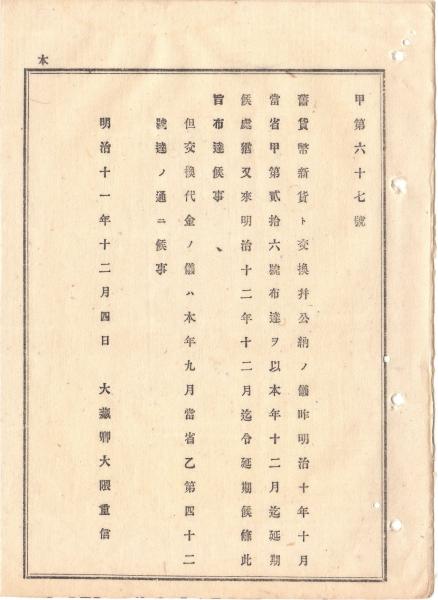 本
甲第六十七號
舊貨幣新貨ト交換幷公納ノ儀昨明治十年十月
當省甲第貳拾六號布達ヲ以本年十二月迄延期
候處猶又來明治十二年十二月迄令延期候條此
旨布達候事
但交換代金ノ儀ハ本年九月當省乙第四十二
號達ノ通ニ候事
明治十一年十二月四日 大藏卿大隈重信